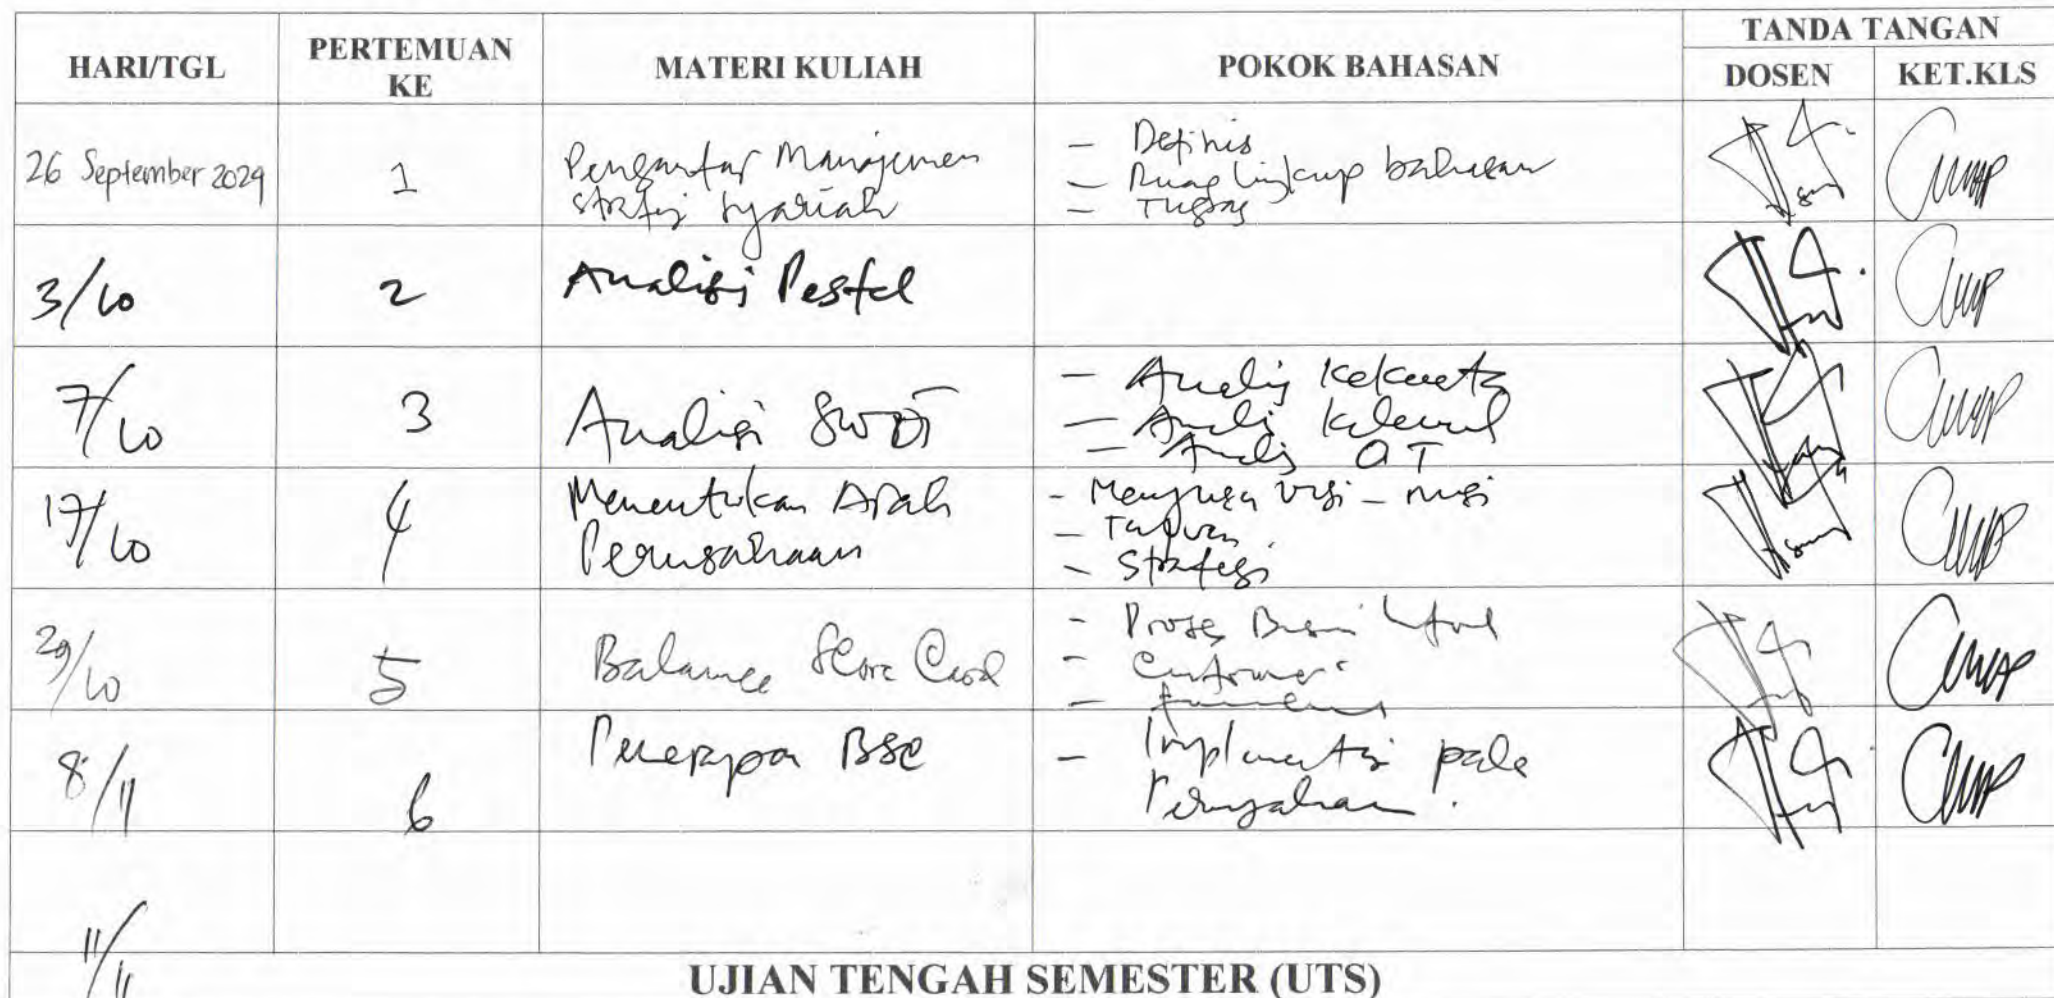 HARI/TGL PERTEMUAN KE MATERI KULIAH POKOK BAHASAN TANDA TANGAN
DOSEN KET.KLS
26 September 2024 1 Pengantar Manajemen - Definis
strategi Syariah - Ruang lingkup bahasan
- Tugas
3/10 2 Analisis Pestel
7/10 3 Analisis SWOT - Analisis Kekuatan
- Analisis
- Analisis OT
17/10 4 Menentukan Arah - Menyusun visi - misi
Perusahaan - Tujuan
- Strategi
29/10 5 Balance Score Card - Proses Bisnis
- Customer
8/11 6 Penerapan BSC - Implementasi pada
Perusahaan.
11/11
UJIAN TENGAH SEMESTER (UTS)